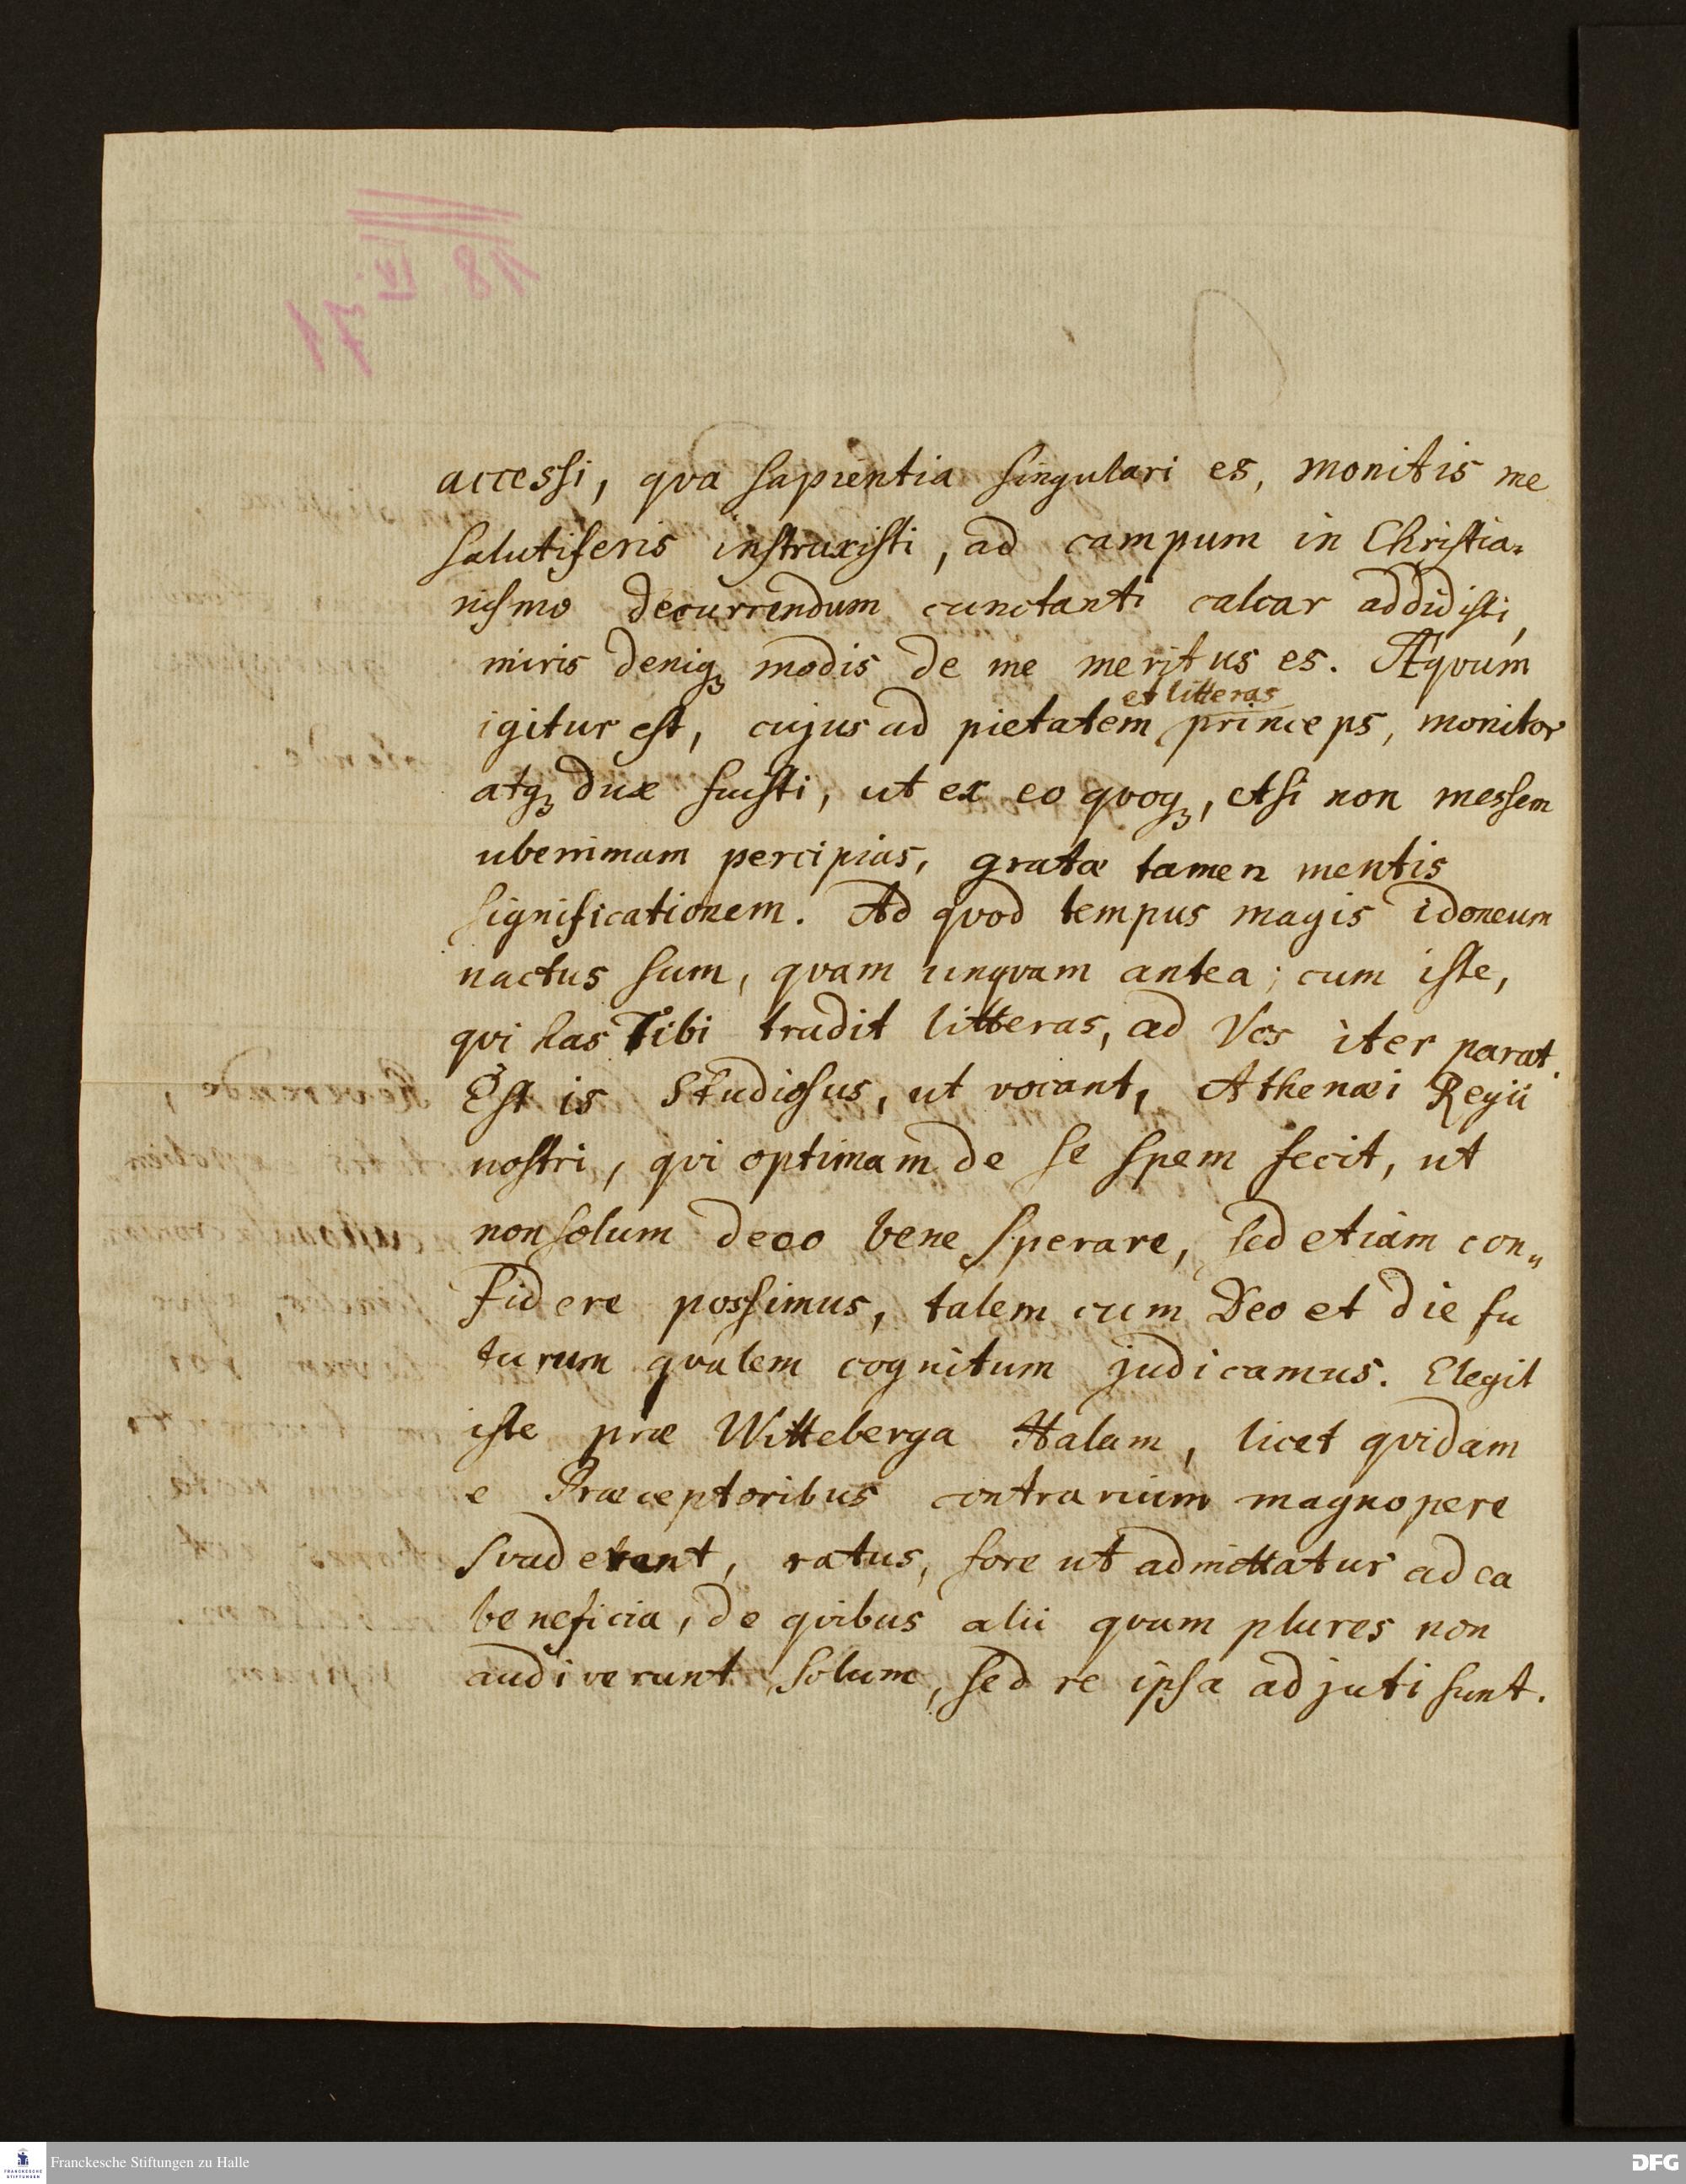 accessi, qva sapientia singulari es, monitis me
salutiferis instruxisti, ad campum in Christia-
nismo decurrendum cunctanti calcar addidisti,
miris deniqꝫ modis de me meritus es. Æqvum
et litteras
igitur est, cujus ad pietatem princeps, monitor
atqꝫ dux fuisti, ut ex eo qvoqꝫ, etsi non messem
uberrimam percipias, gratæ tamen mentis
significationem. Ad qvod tempus magis idoneum
nactus sum, qvam unqvam antea; cum iste,
qvi has Tibi tradit litteras, ad Vos iter parat.
Est is Studiosus, ut vocant, Athenæi Regii
nostri, qvi optimam de se spem fecit, ut
non solum de eo bene sperare, sed etiam con-
fidere possimus, talem cum Deo et die fu
turum qvalem cognitum judicamus. Elegit
iste præ Witteberga Halam, licet qvidam
e Præceptoribus contrarium magnopere
svaderent, ratus, fore ut admittatur ad ea
beneficia, de qvibus alii qvam plures non
audiverunt solum, sed re ipsa adjuti sunt.
Franckesche Stiftungen zu Halle
DFG